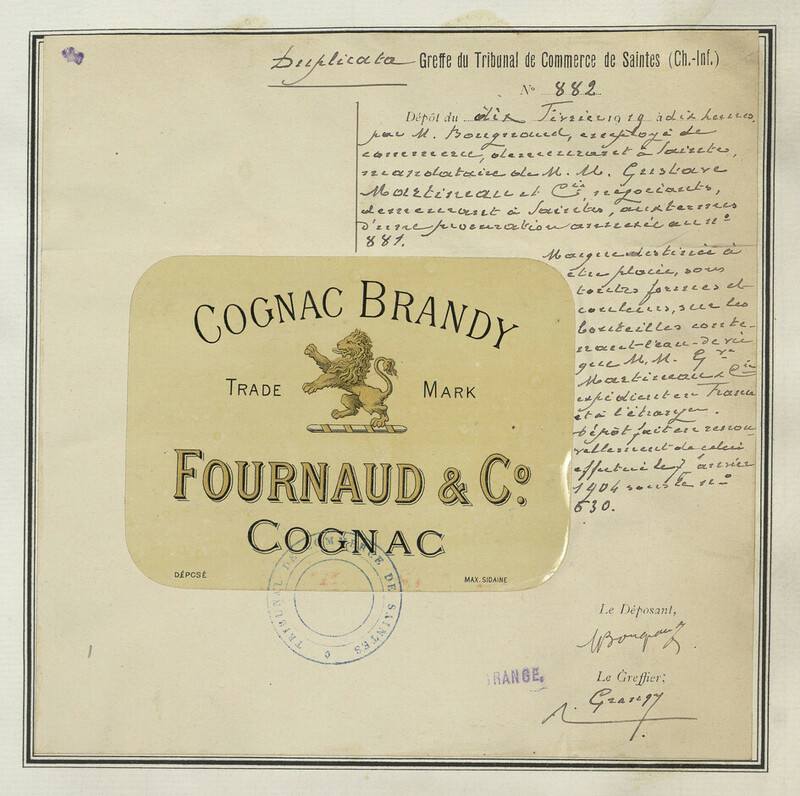 Duplicata Greffe du Tribunal de Commerce de Saintes (Ch.-Inf.)
N° 882
Dépôt du dix Février 1919 à dix heures,
par M. Bougnaud, employé de
commerce, demeurant à Saintes,
mandataire de M. M. Gustave
Martineau et Cie, négociants,
demeurant à Saintes, aux termes
d'une procuration annexée au n°
881.
Marque destinée à
être placée, sous
toutes formes et
couleurs, sur les
bouteilles conte-
nant l'eau-de-vie
que M. M. Gve
Martineau & Cie
expédient en France
et à l'étranger.
Dépôt fait en renou-
vellement de celui
effectué le 7 janvier
1904 sous le n°
630.
COGNAC BRANDY
TRADE MARK
FOURNAUD & Co.
COGNAC
DÉPOSÉ
MAX. SIDAINE
TRIBUNAL DE COMMERCE DE SAINTES
Le Déposant,
Le Greffier;